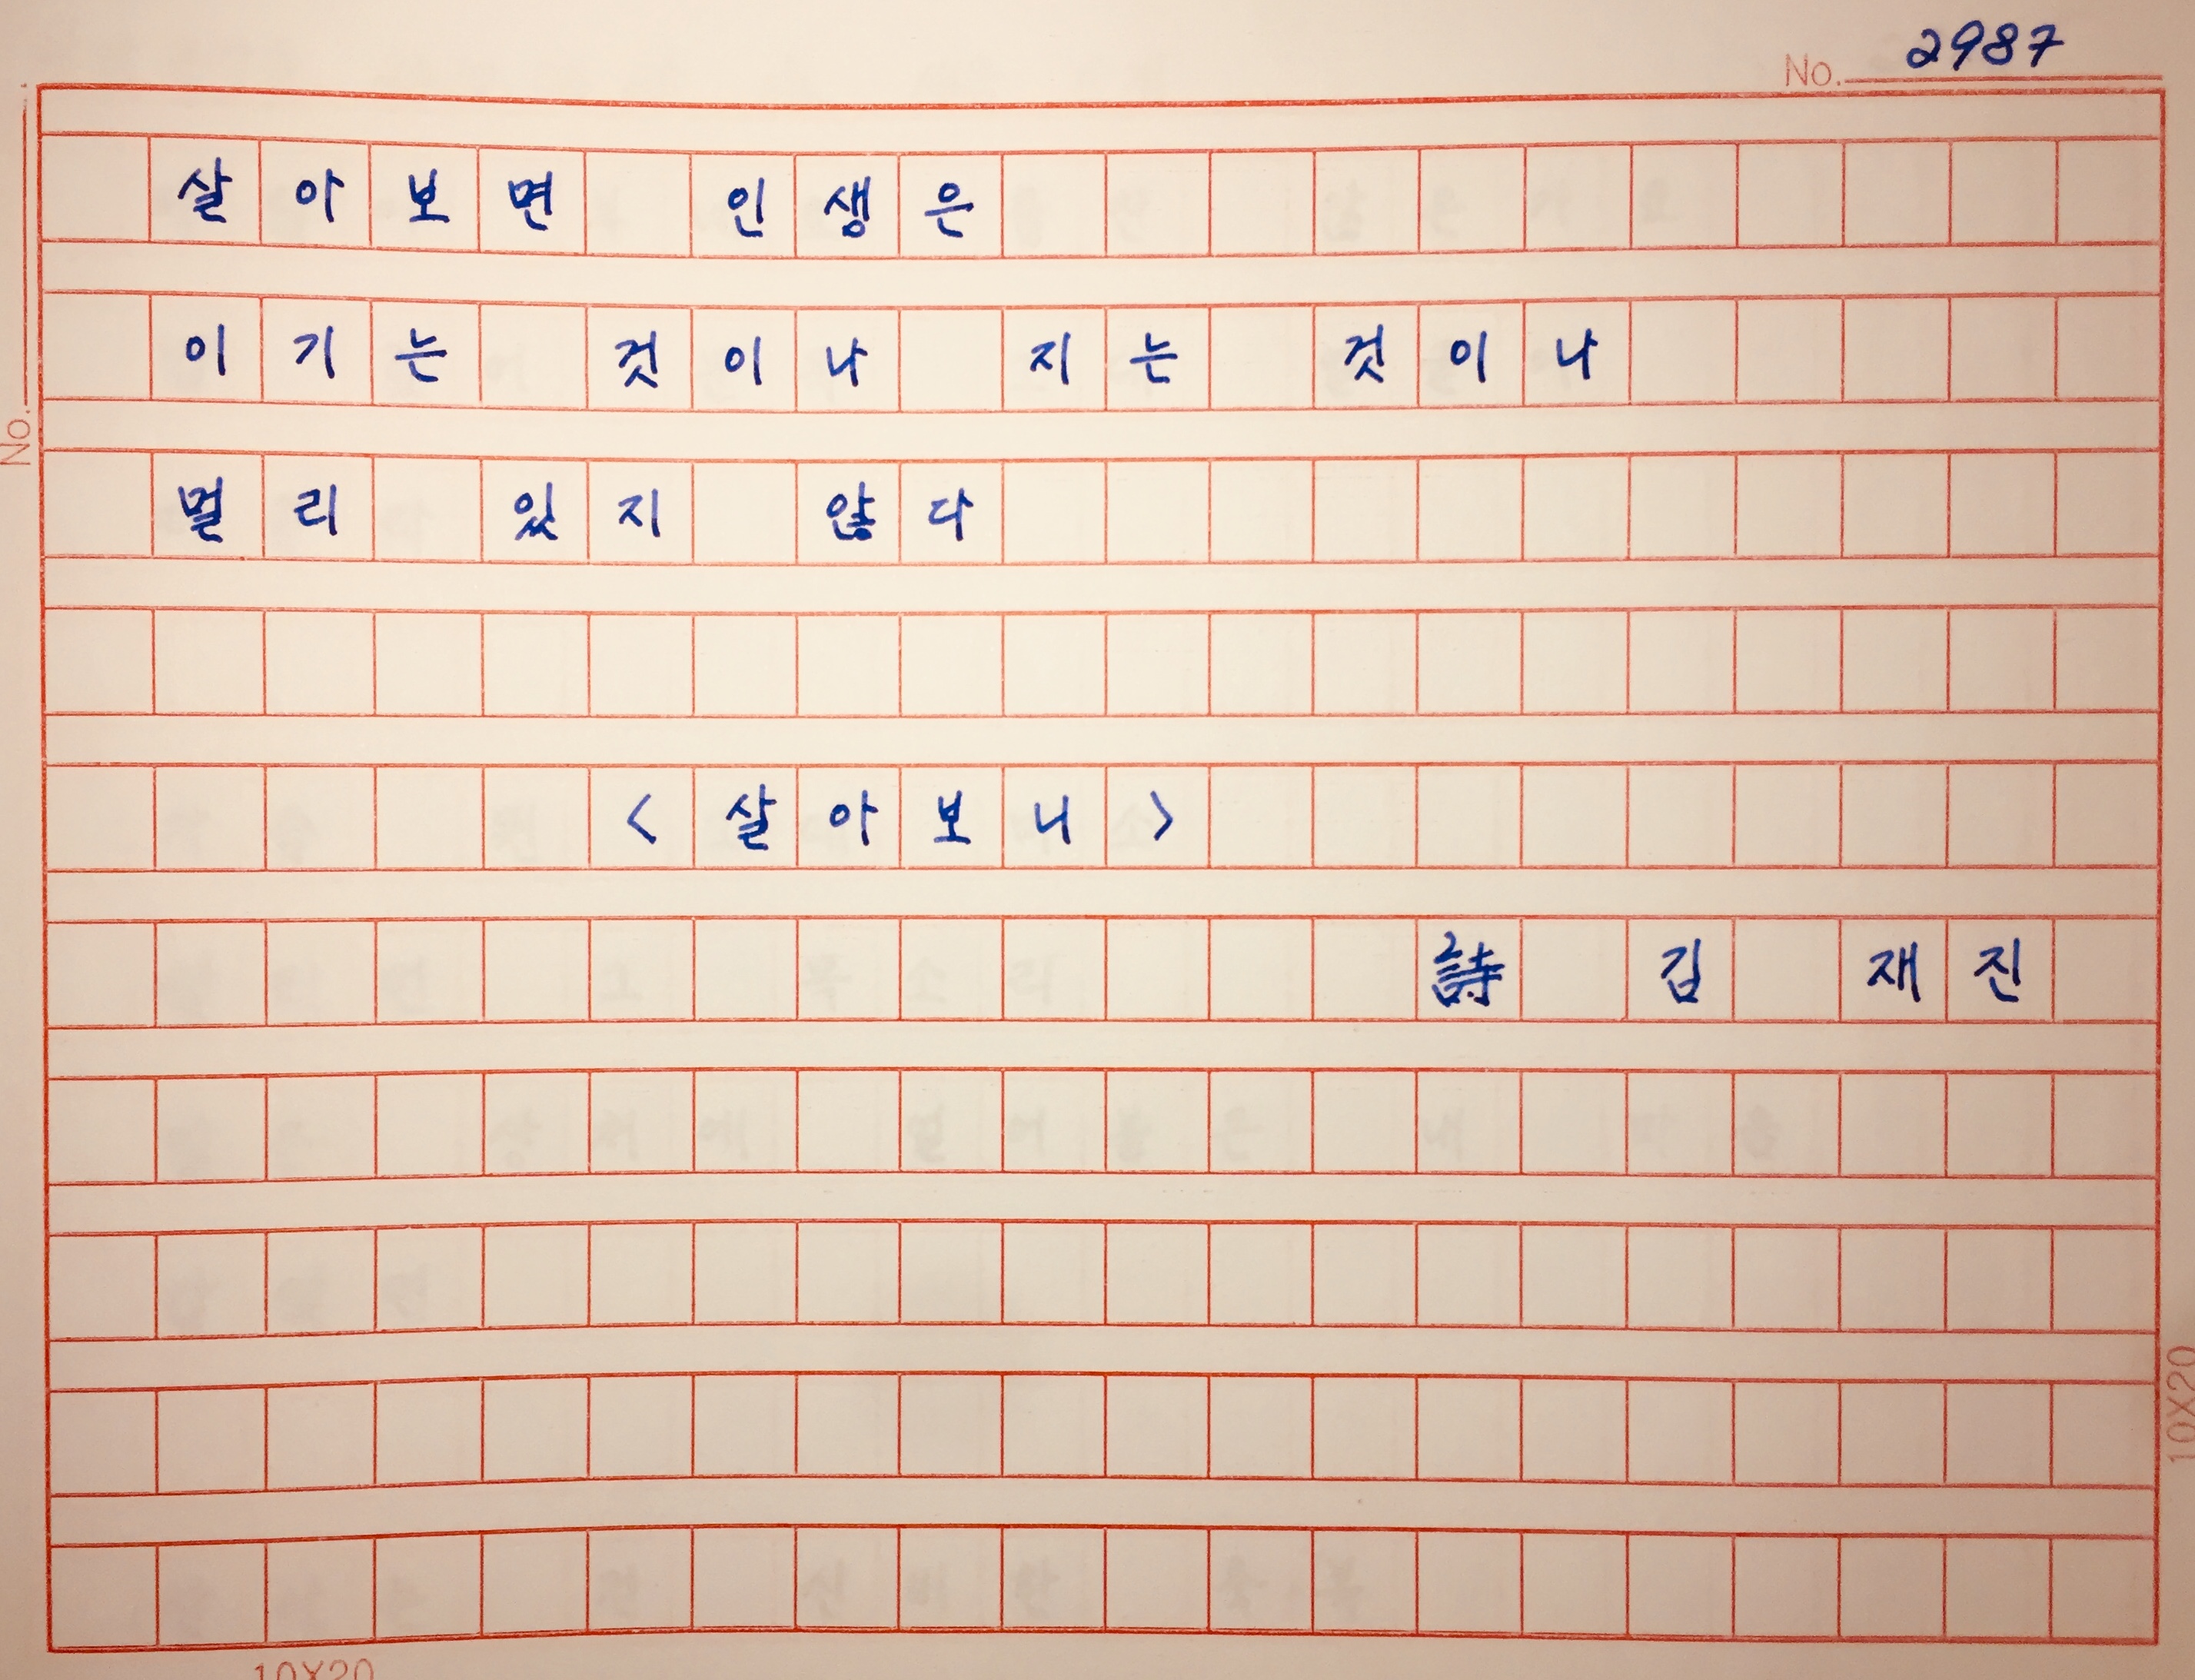 No. 2987
살아보면 인생은
이기는 것이나 지는 것이나
멀리 있지 않다
<살아보니>
詩 김 재진
No.
10X20
10X20